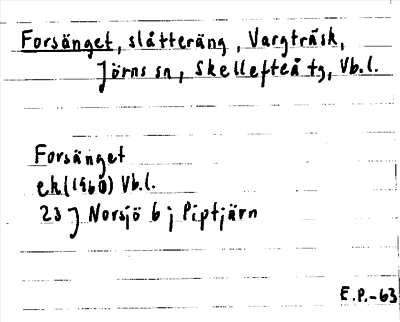 Forsänget, slåtteräng, Vargträsk,
Jörns sn, Skellefteå tg, Vb.l.
Forsänget
ek (1960) Vb.l.
23 J Norsjö 6 j Piptjärn
E.P.-63